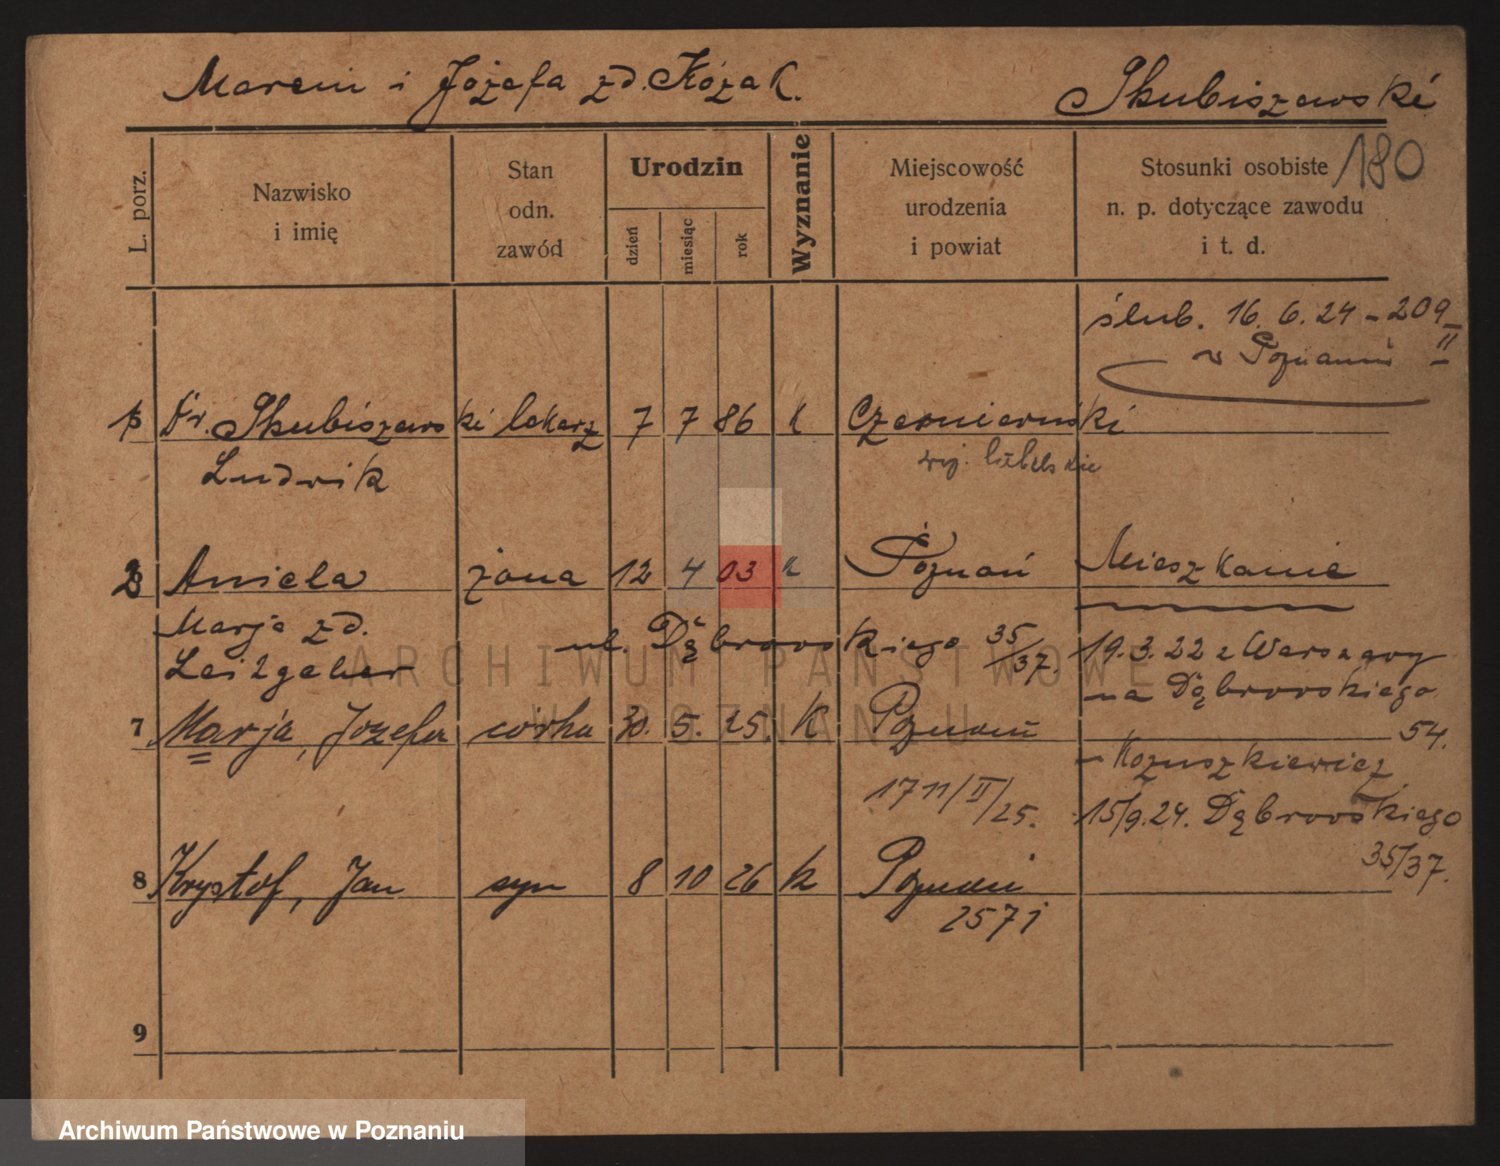 Marcin i Józefa zd. Kózak. Skubiszewski
180
L. porz. Nazwisko i imię Stan odn. zawód Urodzin dzień miesiąc rok Wyznanie Miejscowość urodzenia i powiat Stosunki osobiste n. p. dotyczące zawodu i t. d.
ślub. 16. 6. 24 - 209
II
w Poznaniu
Dr. Skubiszewski lekarz 7 7 86 k Czemierniki
Ludwik woj. lubelskie
2 Aniela żona 12 4 03 k Poznań Mieszkanie
Marja zd. ul. Dąbrowskiego 35/37 19.3.22 z Warszawy
Leitgeber na Dąbrowskiego
7 Marja, Józefa córka 30. 5. 25. K Poznań 54.
Kozuszkiewicz
1711/II/25. 15/9.24. Dąbrowskiego
35/37.
8 Krysztof, Jan syn 8 10 26 k Poznań
2571
9
ARCHIWUM PAŃSTWOWE
W POZNANIU
Archiwum Państwowe w Poznaniu